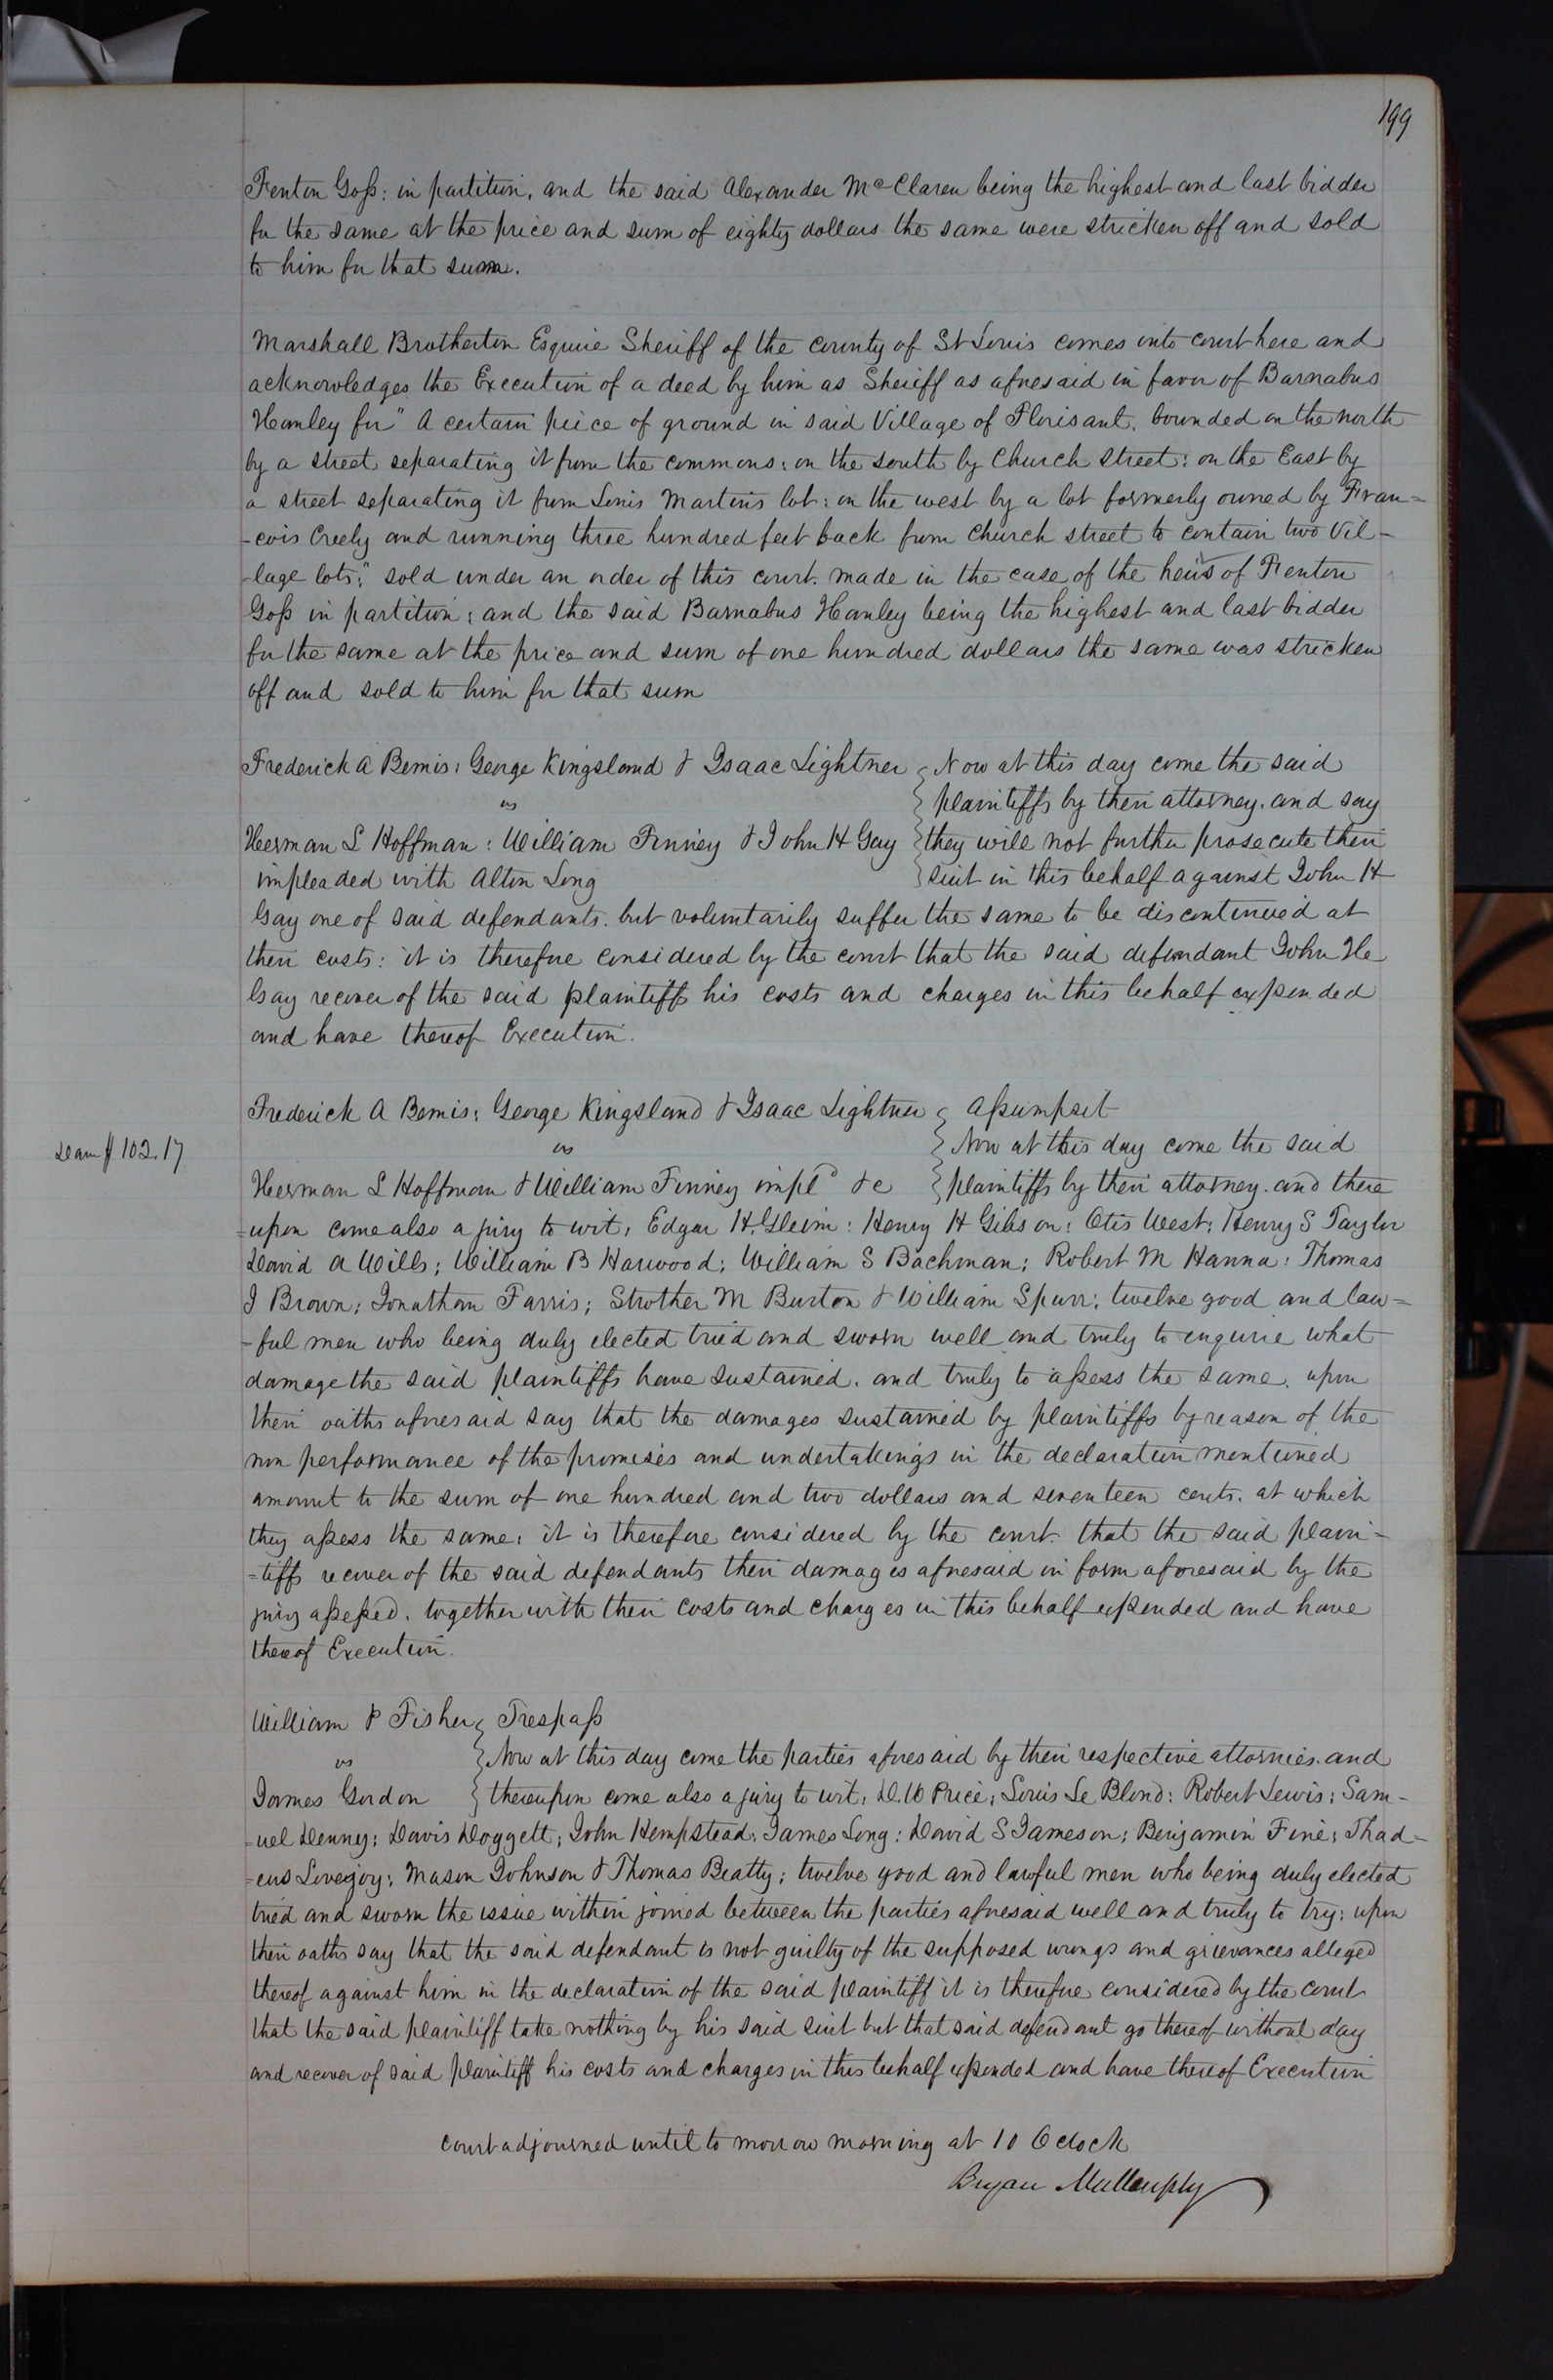 199
Fenton Goss: in partition, and the said Alexander McClaren being the highest and last bidder
for the same at the price and sum of eighty dollars the same were stricken off and sold
to him for that sum.
Marshall Brotherton Esquire Sheriff of the county of St Louis comes into court here and
acknowledges the Execution of a deed by him as Sheriff as aforesaid in favor of Barnabus
Hanley for "A certain peice of ground in said Village of Florisant, bounded on the north
by a street separating it from the commons: on the south by Church street: on the East by
a street separating it from Louis Martins lot: on the west by a lot formerly owned by Fran=
-cois Creely and running three hundred feet back from Church street to contain two Vil-
-lage lots;" sold under an order of this court. made in the case of the heirs of Fenton
Goss in partition; and the said Barnabus Hanley being the highest and last bidder
for the same at the price and sum of one hundred dollars the same was stricken
off and sold to him for that sum
Frederick A Bemis: George Kingsland & Isaac Lightner } Now at this day come the said
vs } plaintiffs by their attorney. and say
Herman L Hoffman: William Finney & John H Gay } they will not further prosecute their
impleaded with Alton Long } suit in this behalf against John H
Gay one of said defendants. but voluntarily suffer the same to be discontinued at
their costs: it is therefore considered by the court that the said defendant John H
Gay recover of the said plaintiffs his costs and charges in this behalf expended
and have thereof Execution.
Frederick A Bemis: George Kingsland & Isaac Lightner } Assumpsit
Dam $102.17
vs } Now at this day come the said
Herman L Hoffman & William Finney impld &c } plaintiffs by their attorney. and there
-upon come also a jury to wit, Edgar H. Gleim: Henry H Gibson: Otis West: Henry S Taylor
David A Wills; William B Harwood; William S Bachman; Robert M Hanna: Thomas
J Brown; Jonathan Farris; Strother M Burton & William Spurr; twelve good and law=
-ful men who being duly elected tried and sworn well and truly to enquire what
damage the said plaintiffs have sustained. and truly to assess the same. upon
their oaiths aforesaid say that the damages sustained by plaintiffs by reason of the
non performance of the promises and undertakings in the declaration mentioned
amount to the sum of one hundred and two dollars and seventeen cents. at which
they assess the same: it is therefore considered by the court. that the said plain-
=tiffs recover of the said defendants their damages aforesaid in form aforesaid by the
jury assessed. together with their costs and charges in this behalf expended and have
thereof Execution.
William P Fisher } Trespass
vs } Now at this day come the parties aforesaid by their respective attornies. and
James Gordon } thereupon come also a jury to wit, D. W Price; Louis Le Blond: Robert Lewis; Sam-
-uel Denny; Davis Doggett; John Hempstead; James Long: David S Jameson; Benjamin Fine; Thad-
=eus Lovejoy; Mason Johnson & Thomas Beatty; twelve good and lawful men who being duly elected
tried and sworn the issue within joined between the parties aforesaid well and truly to try; upon
their oaths say that the said defendant is not guilty of the supposed wrongs and grievances alleged
thereof against him in the declaration of the said plaintiff it is therefore considered by the court
that the said plaintiff take nothing by his said suit but that said defendant go thereof without day
and recover of said plaintiff his costs and charges in this behalf expended and have thereof Execution
Court adjourned until to morrow morning at 10 Oclock
Bryan Mullanphy